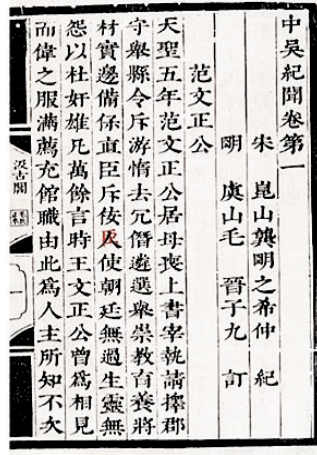 中吳紀聞卷第一
宋 崑山龔明之希仲 紀
明 虞山毛 晉子九 訂
范文正公
天聖五年范文正公居母喪上書宰執請擇郡
守舉縣令斥游惰去冗僭遴選舉崇教育養將
材實邊備保直臣斥佞人使朝廷無過生靈無
怨以杜奸雄凡萬餘言時王文正公曾為相見
而偉之服滿薦充館職由此為人主所知不次
汲古閣
一